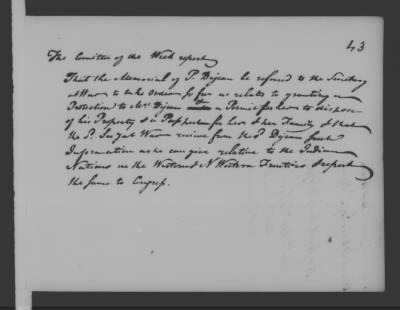 43
The Comittee of the Week report
That the Memorial of P. Dejean be refered to the Secretary
at War to take Order so far as relates to granting a
Protection to Mrs Dejean & a Permit for her to dispose
of his Property & a Passport for her & her Family & that
the Sd. Secy at War receive from the sd Dejean such
Information as he can give relative to the Indian
Nations in the Western & N Western Frontiers & report
the same to Congress.